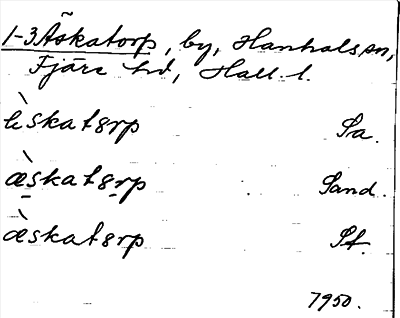 1-3 Äskatorp, by, Hanhals sn,
Fjäre hd, Hall. l.
èskatȣrp Sa.
æ̀skatȣrp Sand.
æ̀skatȣrp St.
7950.